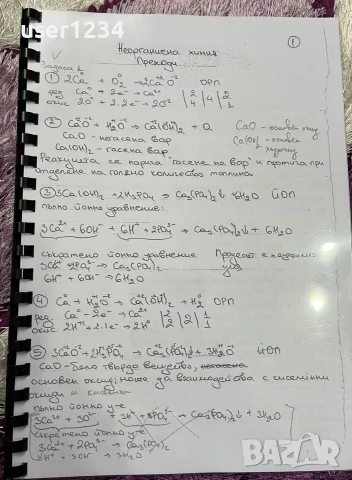 user1234
①
Неорганична химия
Преходи
Задача 1
① 2Ca + O₂ → 2CaO ОРП
ред. Ca⁰ - 2e⁻ → Ca²⁺ | 2 | 4 | 2
окис. 2O⁰ + 2.2e⁻ → 2O²⁻ | 4 | | 1
② CaO + H₂O → Ca(OH)₂ + Q CaO - основен оксид
CaO - негасена вар Ca(OH)₂ - основен
Ca(OH)₂ - гасена вар хидроксид
Реакцията се нарича "гасене на вар" и протича при
отделяне на голямо количество топлина
③ 3Ca(OH)₂ + 2H₃PO₄ → Ca₃(PO₄)₂↓ + 6H₂O ЙОП
пълно йонно уравнение:
3Ca²⁺ + 6OH⁻ + 6H⁺ + 2PO₄³⁻ → Ca₃(PO₄)₂↓ + 6H₂O
съкратено йонно уравнение Процесът е
3Ca²⁺ + 2PO₄³⁻ → Ca₃(PO₄)₂
6H⁺ + 6OH⁻ → 6H₂O
④ Ca + H₂O → Ca(OH)₂ + H₂ ОРП
ред. Ca⁰ - 2e⁻ → Ca²⁺ | 2 | 2 | 1
окис. 2H⁺ + 2.1e⁻ → 2H⁰ | 2 | | 1
⑤ 3CaO + 2H₃PO₄ → Ca₃(PO₄)₂↓ + 3H₂O ЙОП
CaO - бяло твърдо вещество,
основен оксид; може да взаимодейства с киселинни
оксиди и киселини
пълно йонно у-е
3Ca²⁺ + 3O²⁻ + → Ca₃(PO₄)₂↓ + 3H₂O
съкратено йонно у-е
3Ca²⁺ + 2PO₄³⁻ → Ca₃(PO₄)₂
→ 3H₂O
BAZAR